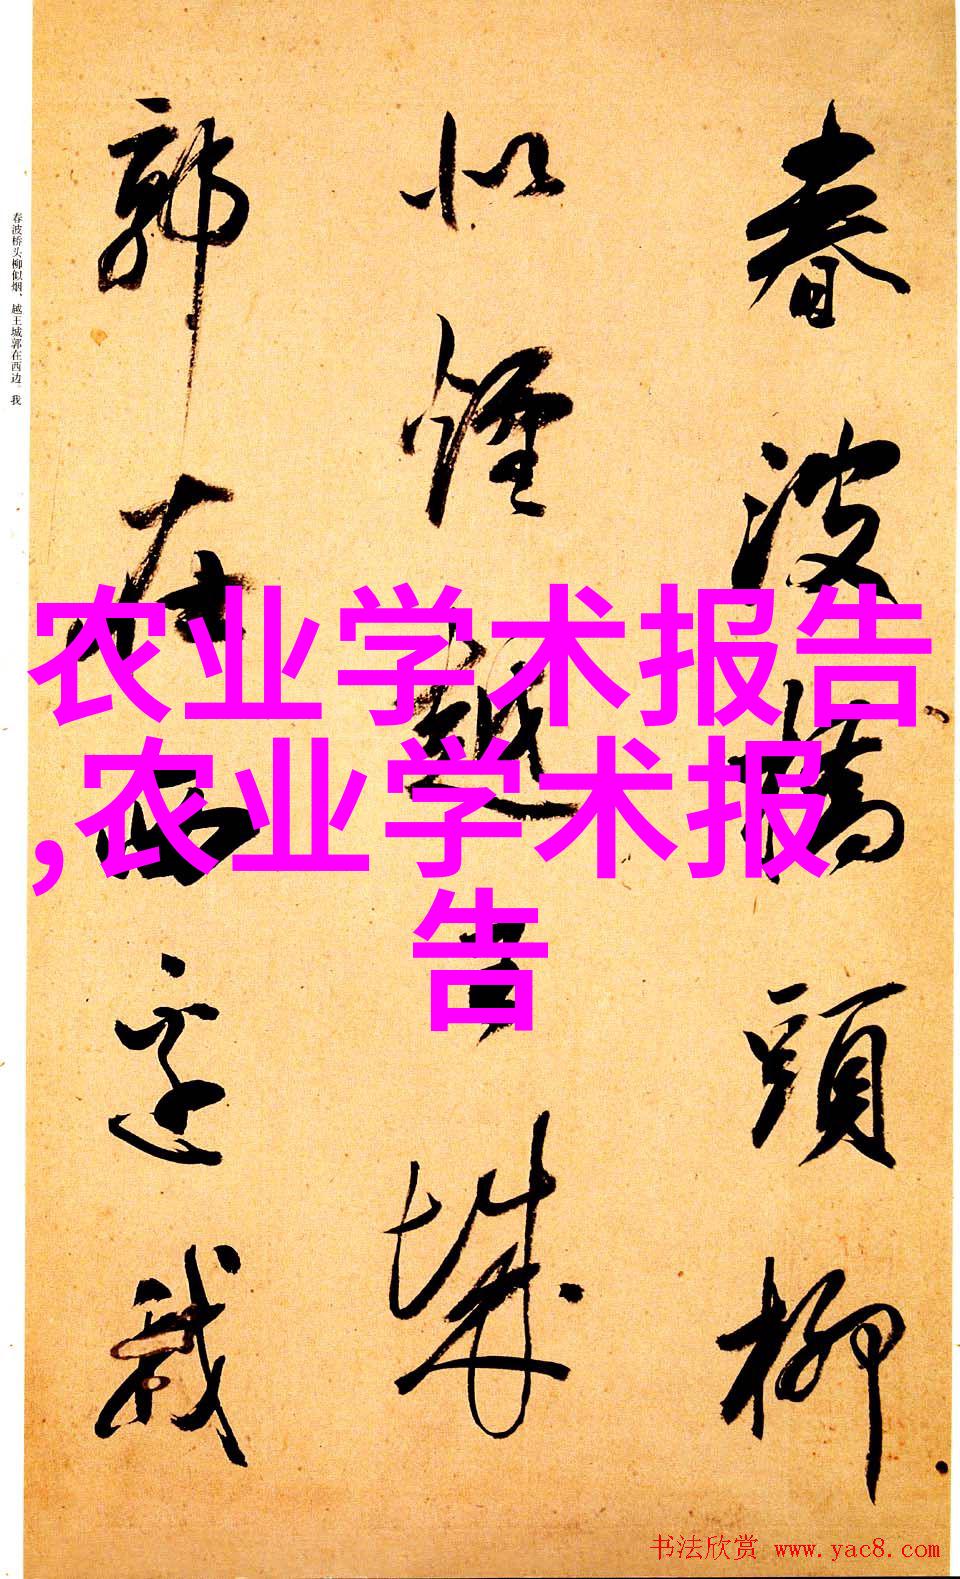 春波橋頭柳
似煙越王城
郭在西邊我
春波桥头柳似烟、越王城郭在西边。我
农业学术报告
,农业学术报
告
书法欣赏 www.yac8.com